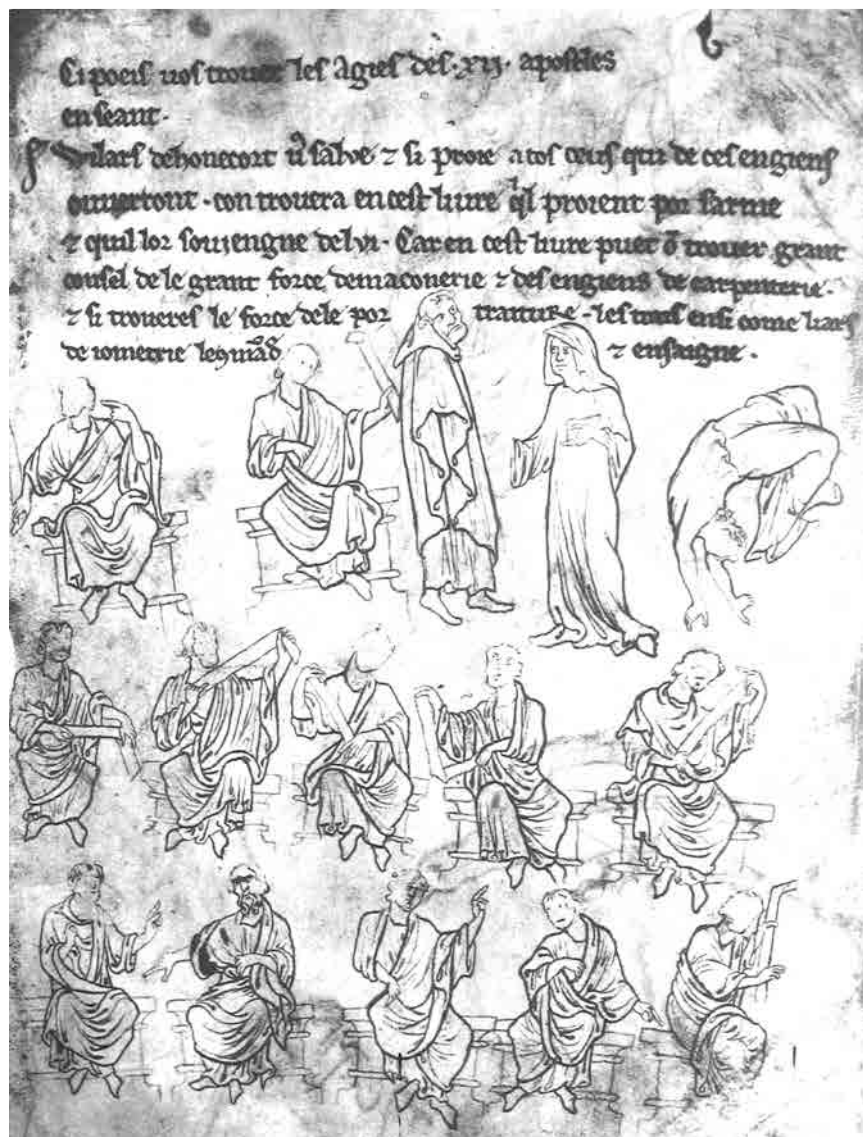 Ci poeis uos trouer les agies des .xij. apostles
en seant .
Wilars dehonecort v9 salve ⁊ si proie a tos ceus qui de ces engiens
ouuerront . con trouera en cest liure qⁱl proient por sarme
⁊ quil lor souiengne de lvi . Car en cest liure puet ō trouer grant
consel de le grant force de maconerie ⁊ des engiens de carpenterie .
⁊ si troueres le force de le por traiture . les trais ensi come li ars
de iometrie le ⁊ ensaigne .